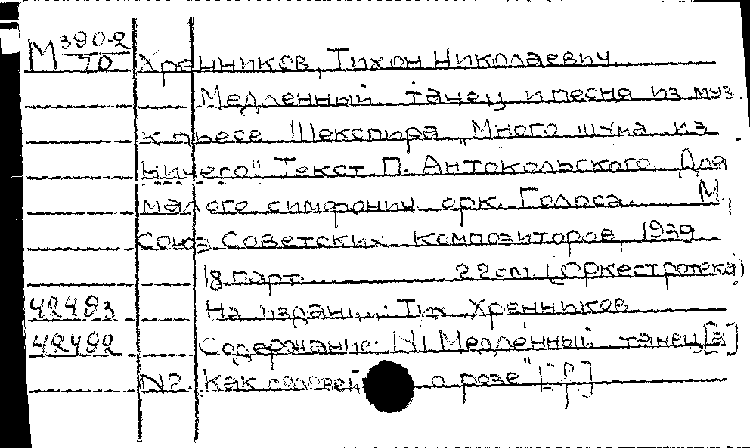 М 3902/70 Хренников, Тихон Николаевич.
Медленный танец и песня из муз.
к пьесе Шекспира „Много шума из
ничего" Текст П. Антокольского. Для
малого симфонич. орк. Голоса. М.,
Союз Советских композиторов, 1939
18 парт. 22 см. (Оркестротека)
42483 На издании: Тих Хренников
42482 Содержание: N1 Медленный танец [a]
N2. Как соловей о розе" [F]